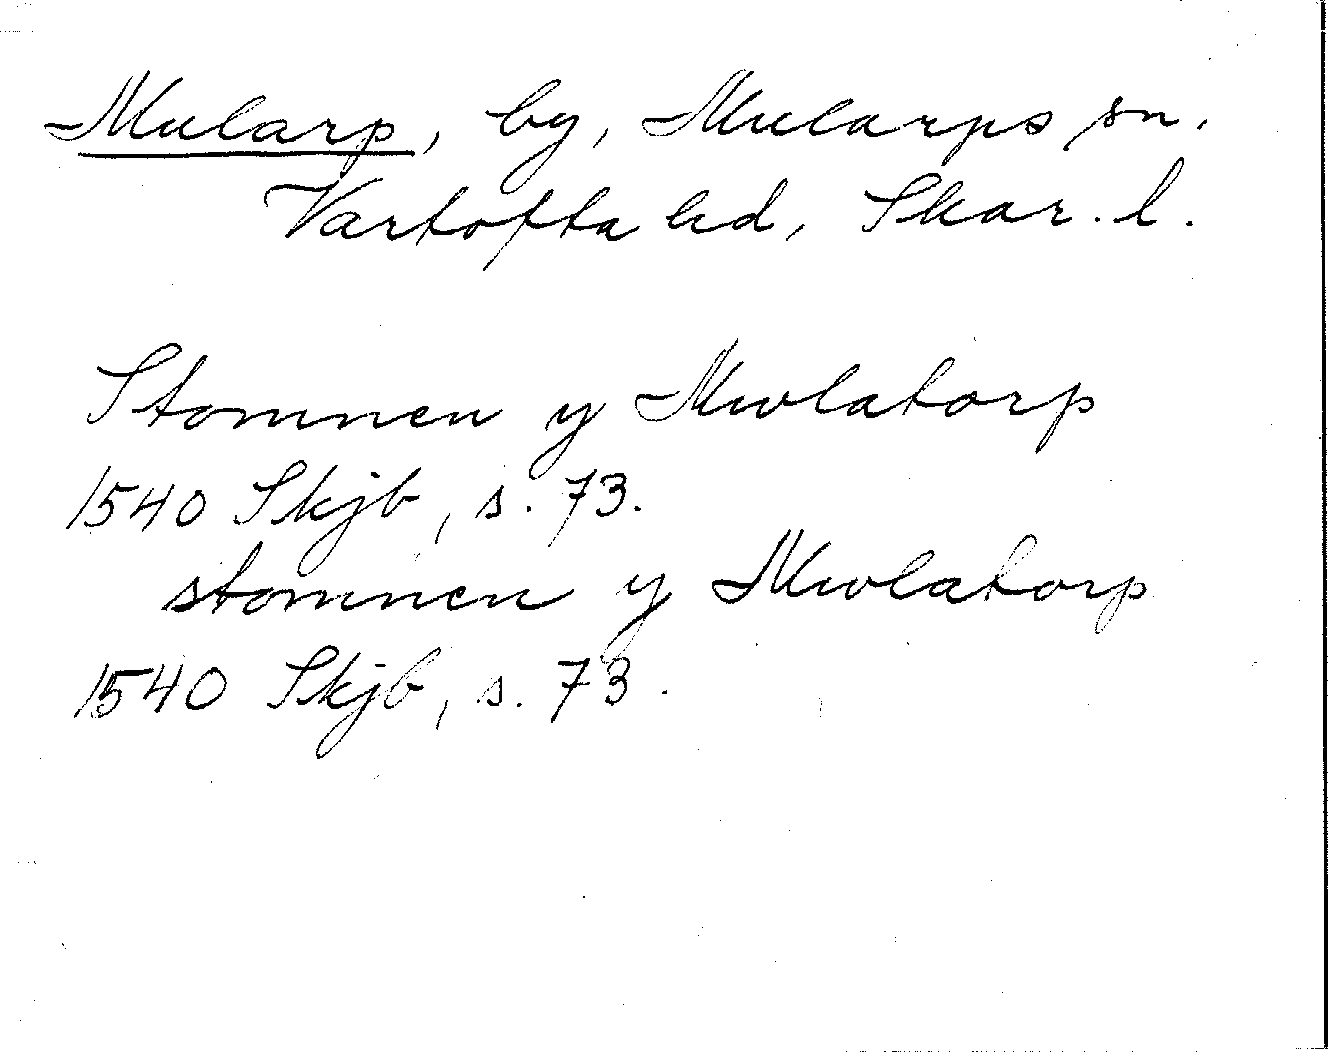 Mularp, by, Mularps sn.
Vartofta hd, Skar. l.
Stommen y Mwlatorp
1540 Skjb, s. 73.
stommen y Mwlatorp
1540 Skjb, s. 73.